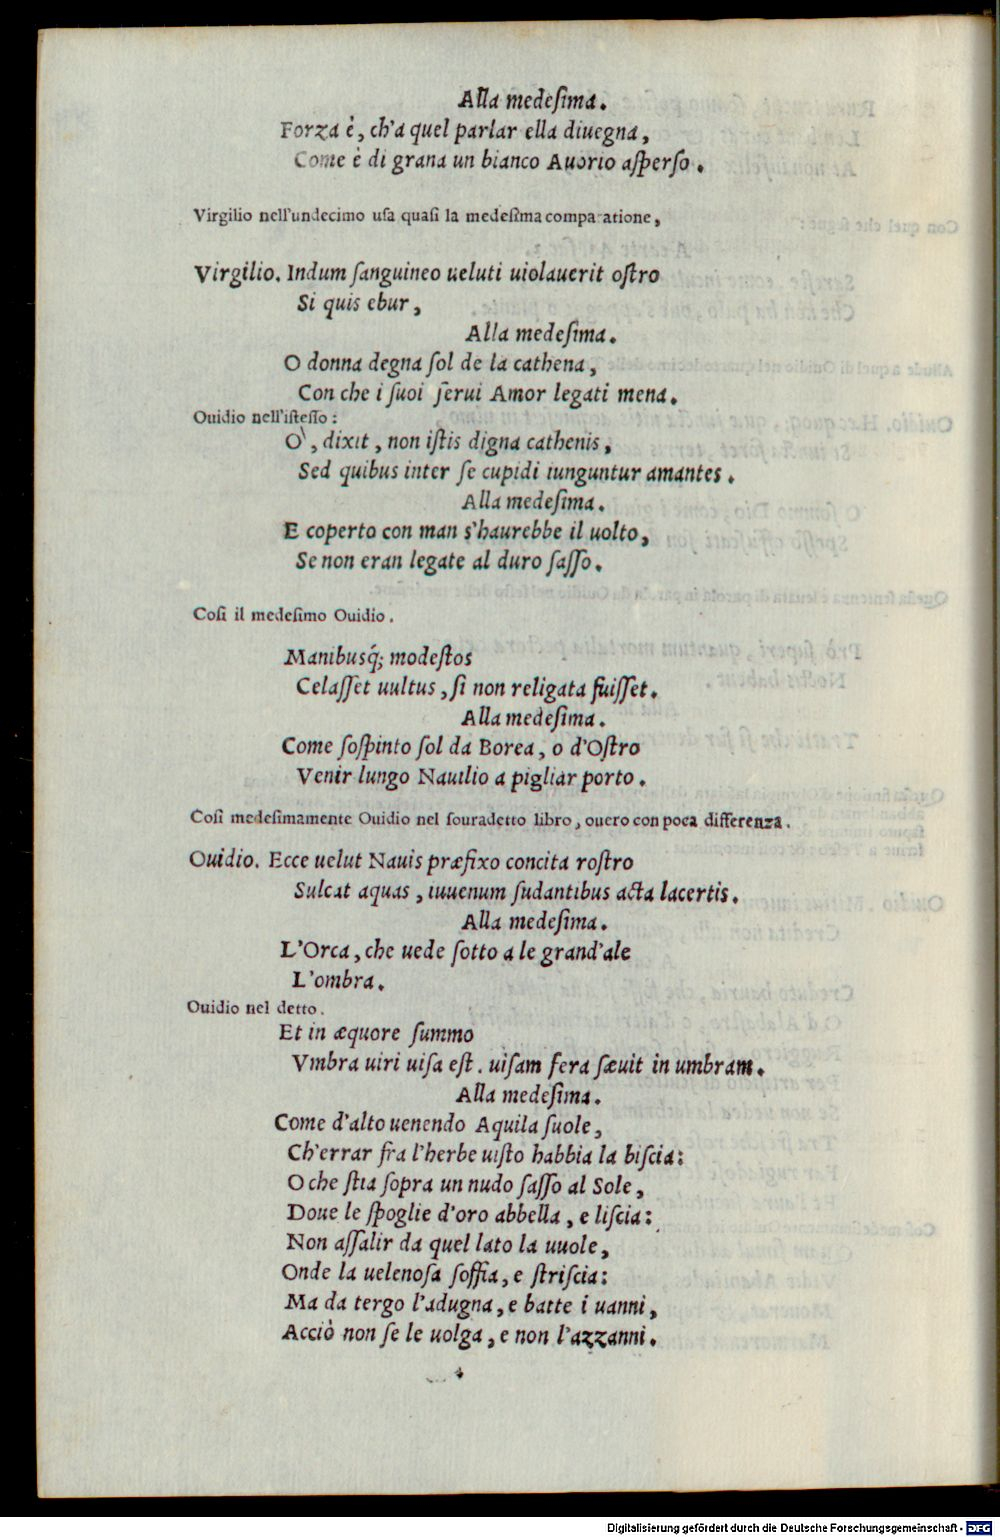 Alla medeſima.
Forza è, ch'a quel parlar ella diuegna,
Come è di grana un bianco Auorio aſperſo.
Virgilio nell'undecimo uſa quaſi la medeſima comparatione,
Virgilio. Indum ſanguineo ueluti uiolauerit oſtro
Si quis ebur,
Alla medeſima.
O donna degna ſol de la cathena,
Con che i ſuoi ſerui Amor legati mena.
Ouidio nell'iſteſſo:
O', dixit, non iſtis digna cathenis,
Sed quibus inter ſe cupidi iunguntur amantes.
Alla medeſima.
E coperto con man s'haurebbe il uolto,
Se non eran legate al duro ſaſſo.
Coſi il medeſimo Ouidio.
Manibusq́; modeſtos
Celaſſet uultus, ſi non religata fuiſſet.
Alla medeſima.
Come ſoſpinto ſol da Borea, o d'Oſtro
Venir lungo Nauilio a pigliar porto.
Coſi medeſimamente Ouidio nel ſouradetto libro, ouero con poca differenza.
Ouidio. Ecce uelut Nauis præfixo concita roſtro
Sulcat aquas, iuuenum ſudantibus acta lacertis.
Alla medeſima.
L'Orca, che uede ſotto a le grand'ale
L'ombra.
Ouidio nel detto.
Et in æquore ſummo
Vmbra uiri uiſa eſt. uiſam fera ſæuit in umbram.
Alla medeſima.
Come d'alto uenendo Aquila ſuole,
Ch'errar fra l'herbe uiſto habbia la biſcia:
O che ſtia ſopra un nudo ſaſſo al Sole,
Doue le ſpoglie d'oro abbella, e liſcia:
Non aſſalir da quel lato la uuole,
Onde la uelenoſa ſoffia, e ſtriſcia:
Ma da tergo l'adugna, e batte i uanni,
Acciò non ſe le uolga, e non l'azzanni.
Digitalisierung gefördert durch die Deutsche Forschungsgemeinschaft - DFG